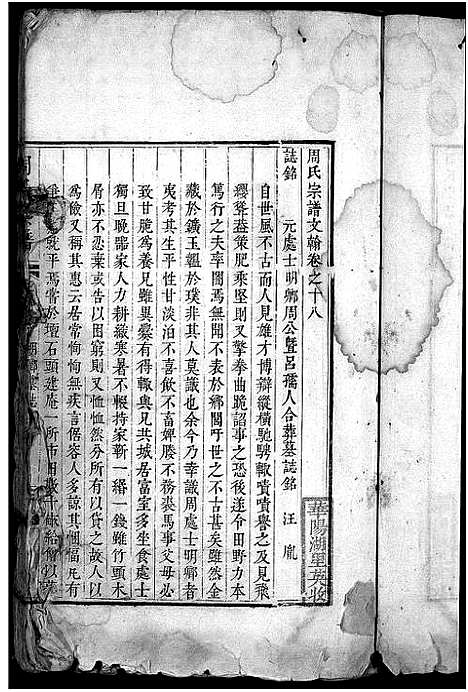 周氏宗譜文翰卷之十八
誌銘
元處士明鄉周公暨呂孺人合葬墓誌銘　汪胤
自世風不古而人見雄才博辯縱橫馳騁輙嘖嘖譽之及見飛
纓聳葢策肥乘堅則又擎拳曲跪諂事之恐後遂令田野力本
篤行之夫率闇焉無聞不表於鄉閭吁世之不古甚矣雖然金
藏於鑛玉韞於璞非其人莫識也余今乃幸識周處士明鄉者
夷考其生平性甘淡泊不喜飲不畜婢媵不務裘馬事父母必
致甘脆為養兄雖異爨有得輙與兄共城居富室多坐食處士
獨旦晚臨家人力耕㪺寒暑不輟持家靳一緡一錢雖竹頭木
屑亦不忍棄或告以困窮則又恤恤然分所以貸之故人
為儉又稱其惠云居常恂恂無疾言倨容人多諒其悃愊凡有
於平焉嘗於壇石頭建庵一所市田數十畝給僧以
華陽湖里